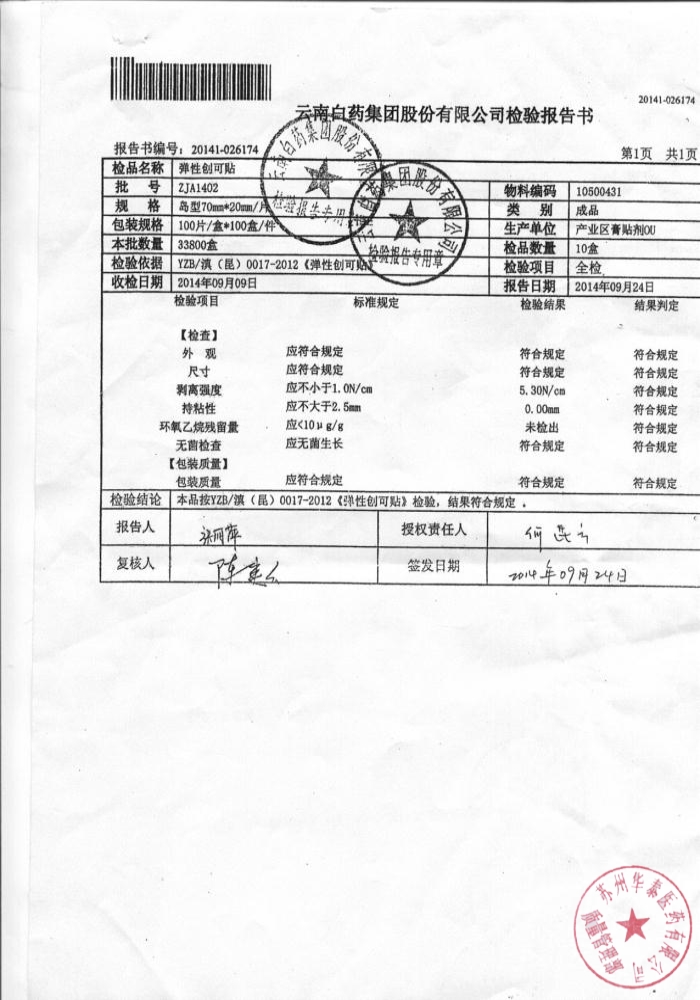 20141-026174
云南白药集团股份有限公司检验报告书
报告书编号：20141-026174 第1页 共1页
检品名称 弹性创可贴
批 号 ZJA1402 物料编码 10500431
规 格 岛型70mm*20mm/片 类 别 成品
包装规格 100片/盒*100盒/件 生产单位 产业区膏贴剂OU
本批数量 33800盒 检品数量 10盒
检验依据 YZB/滇（昆）0017-2012《弹性创可贴》 检验项目 全检
收检日期 2014年09月09日 报告日期 2014年09月24日
检验项目 标准规定 检验结果 结果判定
【检查】
外 观 应符合规定 符合规定 符合规定
尺寸 应符合规定 符合规定 符合规定
剥离强度 应不小于1.0N/cm 5.30N/cm 符合规定
持粘性 应不大于2.5mm 0.00mm 符合规定
环氧乙烷残留量 应<10μg/g 未检出 符合规定
无菌检查 应无菌生长 符合规定 符合规定
【包装质量】
包装质量 应符合规定 符合规定 符合规定
检验结论 本品按YZB/滇（昆）0017-2012《弹性创可贴》检验，结果符合规定．
报告人 授权责任人
复核人 签发日期 2014年09月24日
云南白药集团股份有限公司
检验报告专用章
云南白药集团股份有限公司
检验报告专用章
苏州华泰医药有限公司
质量管理部